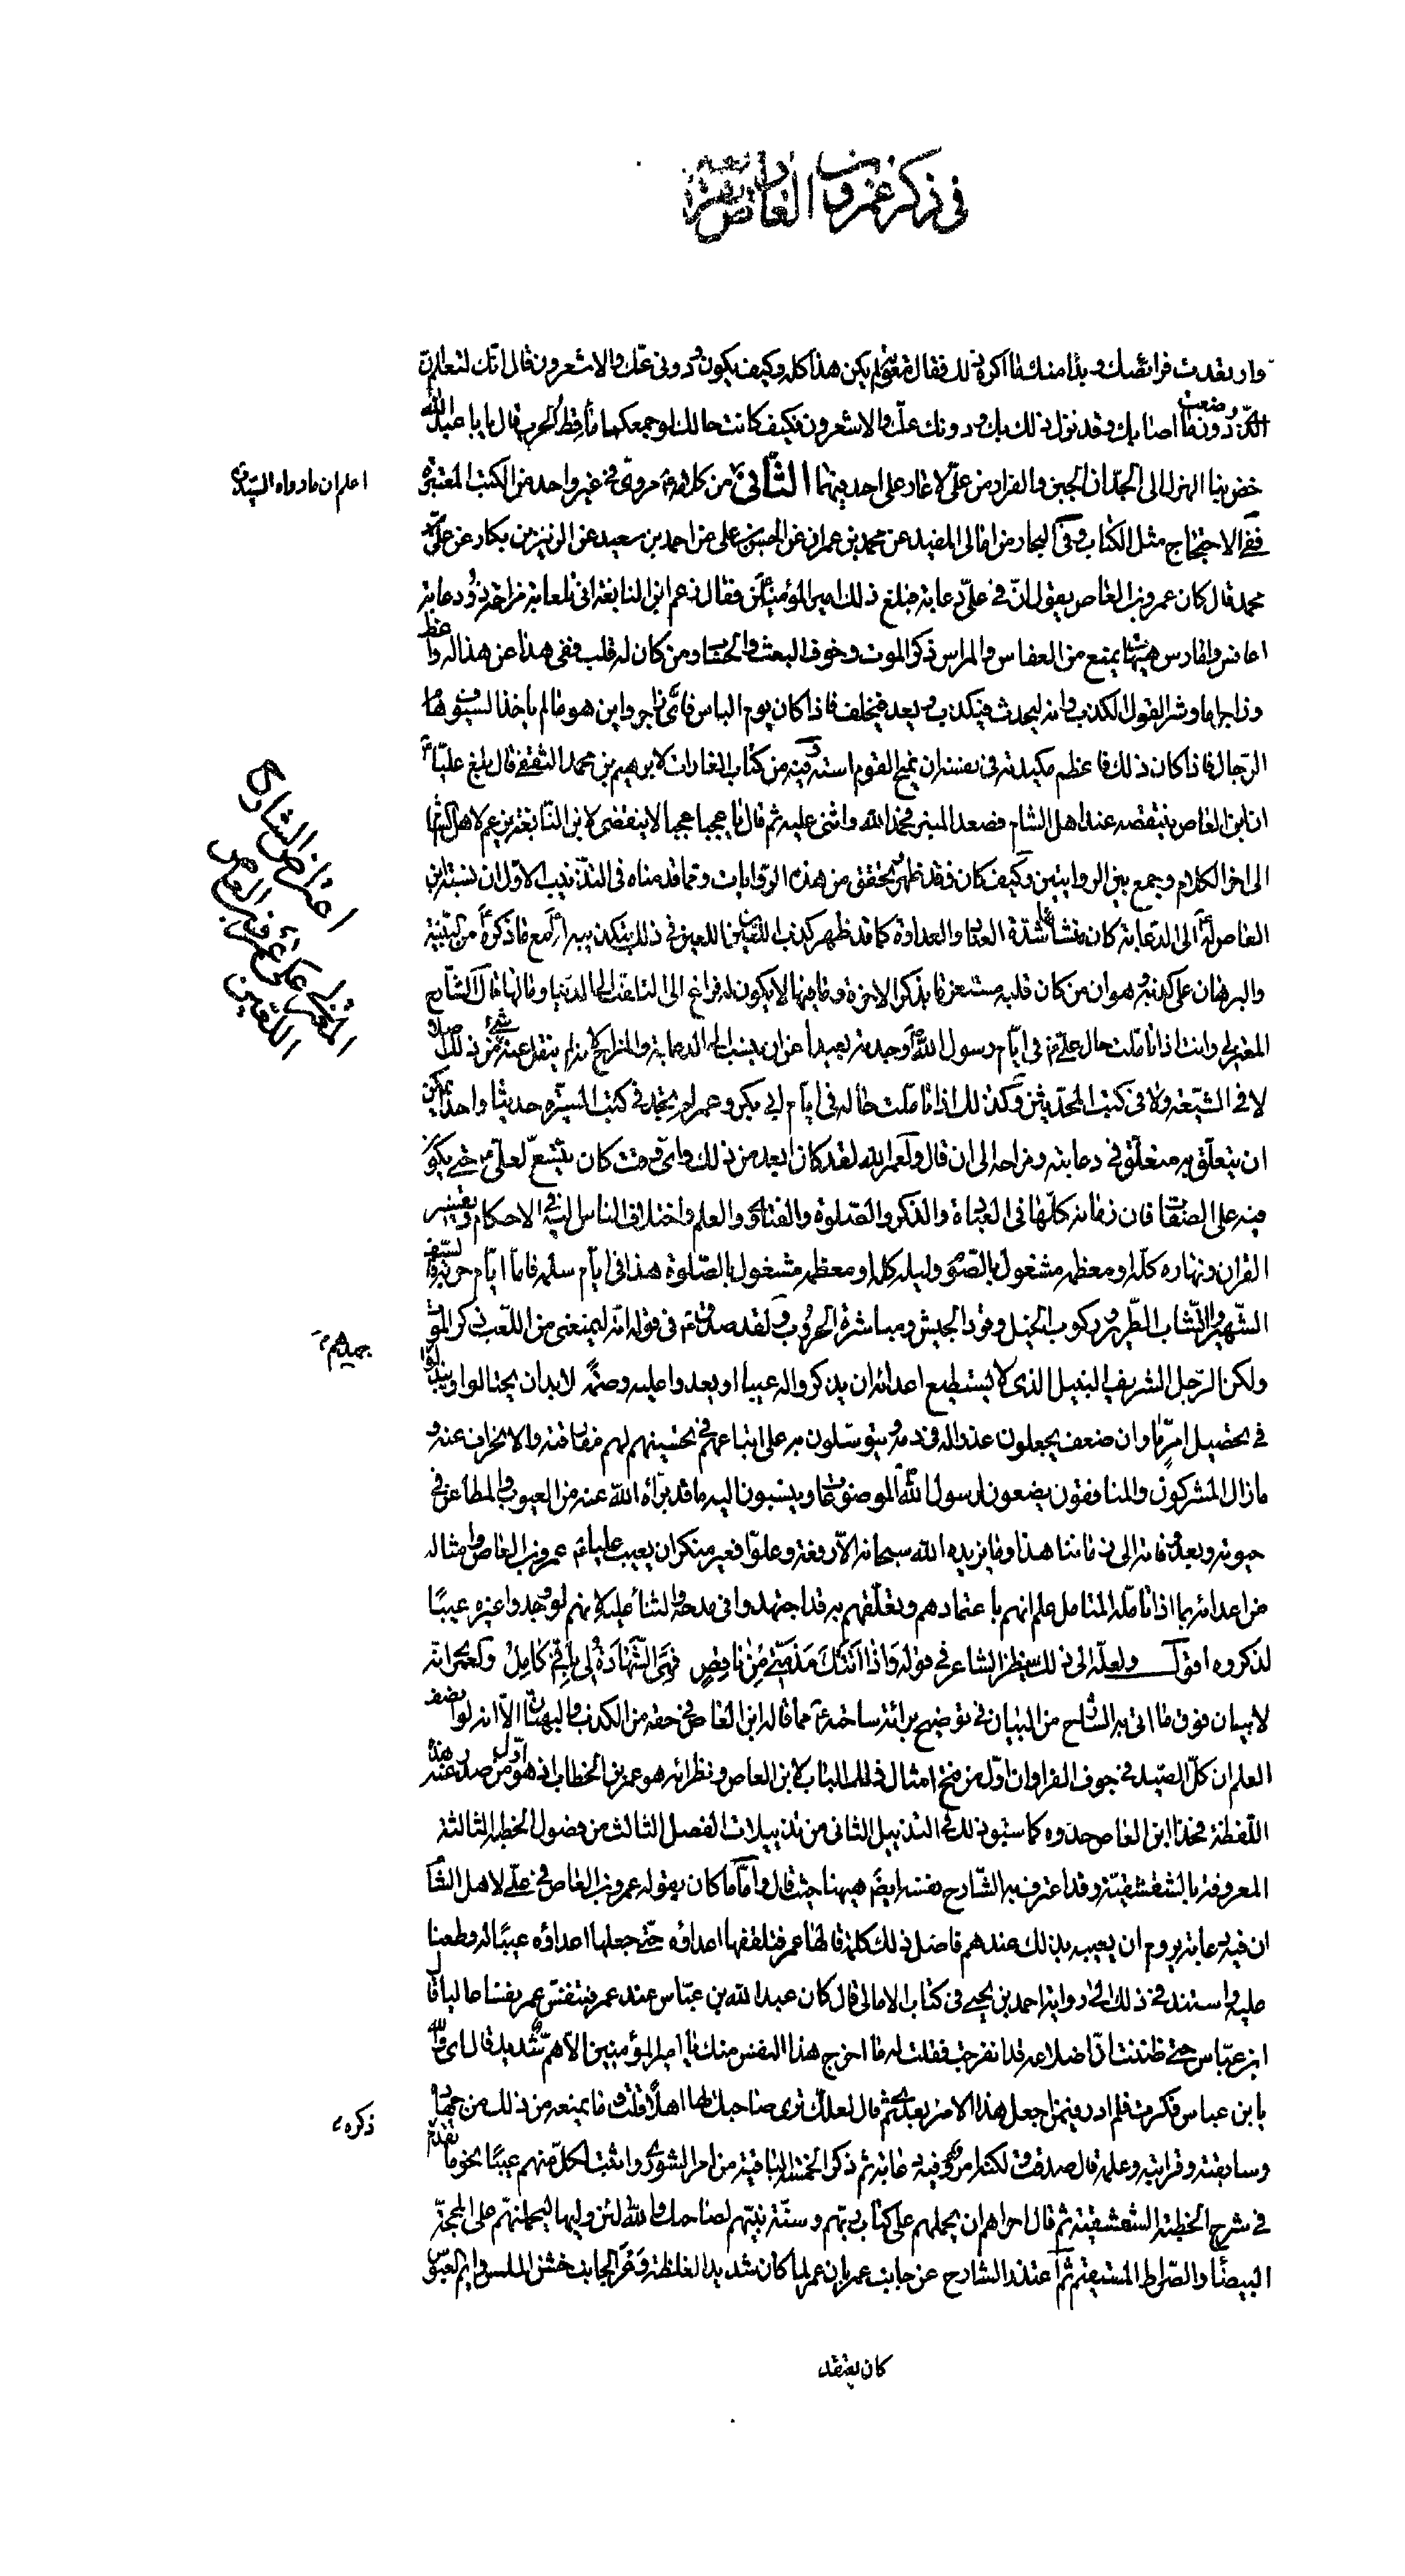 في ذكر عمرو بن العاص
وارتعدت فرائصك وبدا منك ما اكره ذلك فقال معوية لم يكن هذا كله وكيف يكون ودوني عك والاشعرون قال انك لتعلم ان
الذي وصفت دون ما اصابك وقد نزل ذلك بك ودونك عك والاشعرون فكيف كانت حالك لو جمعكما ماقط الحرب قال يا با عبد الله
خض بنا الهزل الى الجد ان الجبن والفرار من علي لا عار على احد فيهما الثاني
اعلم ان ما رواه السيد ره
من كلامه ع مروي في غير واحد من الكتب المعتبرة
ففي الاحتجاج مثل الكتاب وفي البحار من امالي المفيد عن محمد بن عمران عن الحسن بن علي عن احمد بن سعيد عن الزبير بن بكار عن علي بن
محمد قال كان عمرو بن العاص يقول ان في علي دعابة فبلغ ذلك امير المؤمنين فقال زعم ابن النابغة اني تلعابة مزاحة ذو دعابة
اعافس وامارس هيهات يمنع من العفاس والمراس ذكر الموت وخوف البعث والحساب ومن كان له قلب ففي هذا عن هذا له واعظ
وزاجر اما وشر القول الكذب وانه ليحدث فيكذب ويعد فيخلف فاذا كان يوم الباس فاي زاجر وامر هو ما لم ياخذ السيوف هام
الرجال فاذا كان ذلك فاعظم مكيدته في نفسه ان يمنح القوم استه وفيه من كتاب الغارات لابرهيم بن محمد الثقفي قال بلغ عليا ع
ان ابن العاص ينتقصه عند اهل الشام فصعد المنبر فحمد الله واثنى عليه ثم قال يا عجبا عجبا لا ينقضي لابن النابغة يزعم لاهل الشام
الى اخر الكلام وجمع بين الروايتين وكيف كان فقد ظهر وتحقق من هذه الروايات ومما قدمناه في التذنيب الاول ان نسبة ابن
العاص له ع الى الدعابة كان منشاها شدة العناد والعداوة كما قد ظهر كذب اللعين في ذلك بتكذيبه ع مع ما ذكره من البينة
والبرهان على كذبه وهو ان من كان قلبه مستغرقا بذكر الاخرة وما فيها لا يكون له فراغ الى التلفت الى الدنيا وما لها قال الشارح
المعتزلي وانت اذا تاملت حال علي ع في ايام رسول الله ص وجدته بعيدا عن ان ينسب الى الدعابة والمزاح لانه لم ينقل عنه شيء من ذلك اصلا
لا في الشيعة ولا في كتب المحدثين وكذلك اذا تاملت حاله في ايام ابي بكر وعمر لم تجد في كتب السيرة حديثا واحدا يمكن
ان يتعلق به متعلق في دعابته ومزاحه الى ان قال ولعمر الله لقد كان ابعد من ذلك واي وقت كان يتسع لعلي ع حتى يكون
فيه على الصفات فان زمانه كلها في العبادة والذكر والصلوة والفتاوى والعلم واختلاف الناس اليه في الاحكام وتفسير
القران ونهاره كله او معظمه مشغول بالصوم وليله كله او معظمه مشغول بالصلوة هذا في ايام سلمه فاما ايام حربه فالسيف
الشهير والسنان الطرير وركوب الخيل وقود الجيش ومباشرة الحروب ولقد صدق ع في قوله انه ليمنعني من اللعب ذكر الموت
ولكن الرجل الشريف النبيل الذي لا يستطيع اعدائه ان يذكروا له عيبا او يعدوا عليه وصمة لا بد ان يحتالوا ويبذلوا
جهدهم
في تحصيل امر ما وان ضعف يجعلونه عذرا له في ذمه ويتوسلون به على اتباعهم في تحسينهم لهم مفارقته والانحراف عنه و
ما زال المشركون والمنافقون يضعون لرسول الله الموضوعات وينسبون اليه ما قد براه الله عنه من العيوب والمطاعن في
حيوته وبعد وفاته الى زماننا هذا وما يزيده الله سبحانه الا رفعة وعلوا فغير منكر ان يعيب عليا ع عمرو بن العاص وامثاله
من اعدائه بما اذا تامله المتامل علم انهم باعتمادهم وتعلقهم به قد اجتهدوا في مدحه والثناء عليه لانهم لو وجدوا غيره عيبا
لذكروه اقول ولعله الى ذلك ينظر الشاعر في قوله واذا اتتك مذمتي من ناقص فهي الشهادة لي باني كامل ولعمري انه
لا بيان فوق ما اتى به الشارح من البيان في توضيح برائة ساحته ع مما قاله ابن العاص في حقه من الكذب والبهتان الا انه لو انصف
العلم ان كل الصيد في جوف الفرا وان اول من فتح امثال ذلك الباب لابن العاص ونظرائه هو عمر بن الخطاب اذ هو اول من صدر عنه هذه
اللفظة فحذا ابن العاص حذوه كما سبق ذلك في التذييل الثاني من تذييلات الفصل الثالث من فصول الخطبة الثالثة
المعروفة بالشقشقية وقد اعترف به الشارح نفسه ايضا هيهنا حيث قال واما ما كان يقوله عمرو بن العاص في علي لاهل الشام
ان فيه دعابة يروم ان يعيبه بذلك عندهم فاصل ذلك كلمة قالها عمر فتلقفها اعداؤه حتى جعلها اعداؤه عيبا له وطعنا
عليه واستند في ذلك الى رواية احمد بن يحيى في كتاب الامالي قال كان عبد الله بن عباس عند عمر فتنفس عمر نفسا عاليا قال
ابن عباس حتى ظننت ان اضلاعه قد انفرجت فقلت له ما اخرج هذا النفس منك يا امير المؤمنين الا هم شديد قال اي والله
يا بن عباس فكرت فلم ادر فيمن اجعل هذا الامر بعدي ثم قال لعلك ترى صاحبك لها اهلا قلت وما يمنعه من ذلك من جهاده
وسابقته وقرابته وعلمه قال صدقت ولكنه امرء فيه دعابة ثم ذكر الخمسة الباقية من امر الشورى واثبت لكل منهم عيبا نحو ما تقدم
ذكره
في شرح الخطبة الشقشقية ثم قال احراهم ان يحملهم على كتاب ربهم وسنة نبيهم لصاحبك والله لئن وليها ليحملنهم على المحجة
البيضاء والصراط المستقيم ثم اعتذر الشارح عن جانب عمر بان عمر لما كان شديد الغلظة وعر الجانب خشن الملمس دايم العبوس
كان يعتقد
اعتراض الشارح
المعتزلي على عمرو بن العاص
اللعين